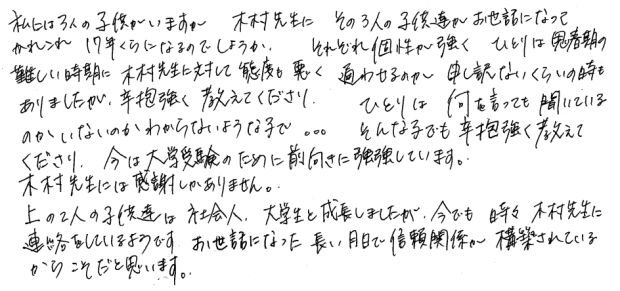 私には3人の子供がいますが 木村先生に その3人の子供達がお世話になって
かれこれ 17年くらいになるのでしょうか. それぞれ個性が強く ひとりは思春期の
難しい時期に 木村先生に対して 態度も悪く 通わせるのが 申し訳ないくらいの時も
ありましたが. 辛抱強く 教えてくださり. ひとりは 何を言っても 聞いている
のか いないのか わからないような子で ... そんな子でも 辛抱強く教えて
くださり. 今は大学受験のために前向きに強強しています。
木村先生には感謝しかありません。
上の2人の子供達は 社会人. 大学生と成長しましたが. 今でも 時々 木村先生に
連絡をしているようです お世話になった 長い月日で 信頼関係が 構築されている
からこそだと思います。